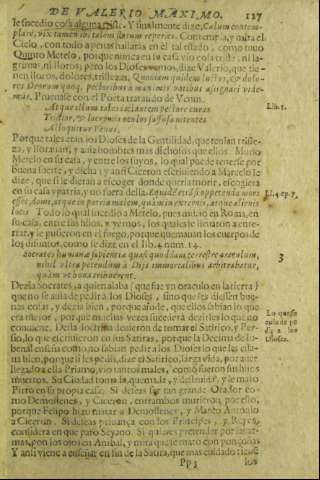 DE VALERIO MAXIMO. 117
le sucedio cosa alguna triste. Y finalmente dize, Cælum contem-
plare, vix tamen ibi talem statum reperies. Contempla, y mira el
Cielo, con todo apenas hallaràs en èl tal estado, como tuuo
Quinto Metelo, porque nunca en su casa vio cosa triste, ni la-
grimas, ni lloros; pero los Dioses vemos, dize Valerio, que tie-
nen lloros, dolores, tristezas, Quoniam quidem luctus, & dolo-
res Deorum quoq, pectoribus à maximis vatibus assignari vide-
mus. Prueuase con el Poeta tratando de Venus.
Atque illum tales iactantem pectore curas
Tristior, & lacrymis oculos suffusa nitentes
Alloquitur Venus,
Lib. 1.
Porque tales eran los Dioses de la Gentilidad, que tenian triste-
za, y llorauan, y auia hombres mas dichosos que ellos. Murio
Metelo en su casa, y entre los suyos, lo qual puede tenerse por
buena suerte, y dicha; y ansi Ciceron escriuiendo à Marcelo le
dize, que si le dieran à escoger donde queria morir, escogiera
en su casa y patria, y no fuera della.
esse, domi, atque in patria malem, quàm in externis, atque alienis
locis. Todo lo qual sucedio a Metelo, pues murio en Roma, en
su casa, entre sus hijos, y yernos, los quales le lleuaron à ente-
rrar, y le pusieron en el fuego, porque quemauan los cuerpos de
los difuntos, como se dize en el lib. 4. num. 14.
Li. 4. ep. 7.
Socrates humanæ sapientiæ quasi quoddam terrestre oraculum,
nihil vltra petendum à Dijs immortalibus arbitrabatur,
quàm vt bona tribuerent.
3
Dezia Socrates, a quien alaba (que fue vn oraculo en la tierra)
que no se auia de pedir a los Dioses, sino que les diessen bue-
nas cosas, y dezia bien, porque añade, que ellos sabian lo que
era mejor, porque muchas vezes sucederia dezirles lo que no
conuiene. Desta doctrina deuieron de tomar el Satirico, y Per-
sio, lo que escriuieron en sus Satiras, porque la Decima de Iu-
benal enseña como no sabian pedir a los Dioses lo que les esta-
Lo que se
auia de pe
dir a los
Dioses.
ua bien, porque si les pedis, dize el Satirico, larga vida, por auer
llegado a ella Priamo, vio tantos males, como fueron sus hijos
muertos. Su Ciudad tomada, quemada, y destruida, y le mato
Pirro en su propia casa. Si deseas ser tan grande Orador co-
mo Demostenes, y Ciceron, entrambos murieron, por ello,
porque Felipo hizo matar a Demostenes, y Marco Antonio
à Ciceron. Si deseas priuança con los Principes, y Reyes,
considera en que paro Seyano. Si quieres pretender por las ar-
mas, pon los ojos en Anibal, y mira que le mato con ponçoñas
Y ansi viene a enseñar en fin de la Satira, que mas cuidado tiene
Pp 3 los